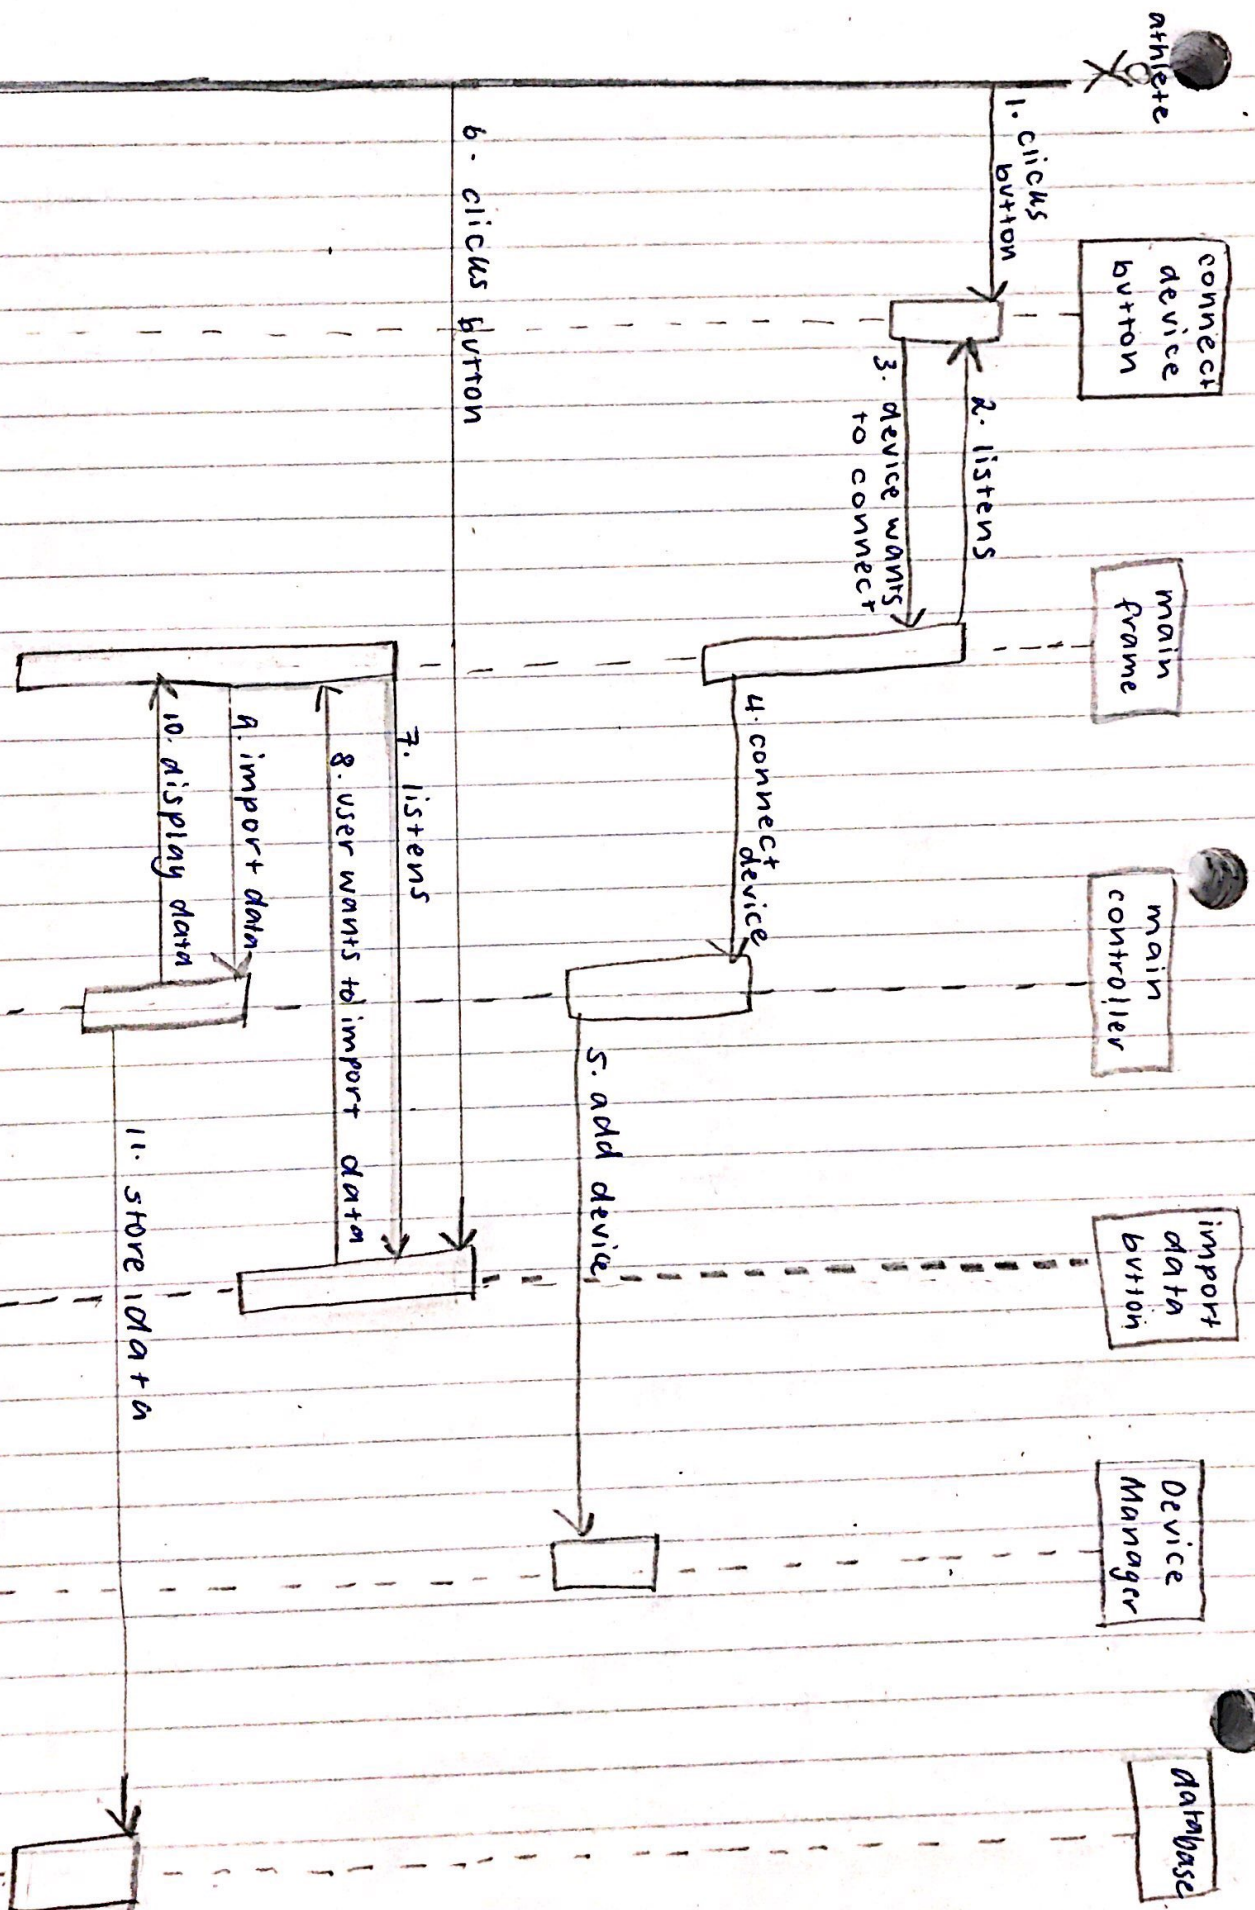 athlete
connect
device
button
main
frame
main
controller
import
data
button
Device
Manager
database
1. clicks
button
2. listens
3. device wants
to connect
4. connect
device
5. add device
6. clicks button
7. listens
8. user wants to import data
9. import data
10. display data
11. store data